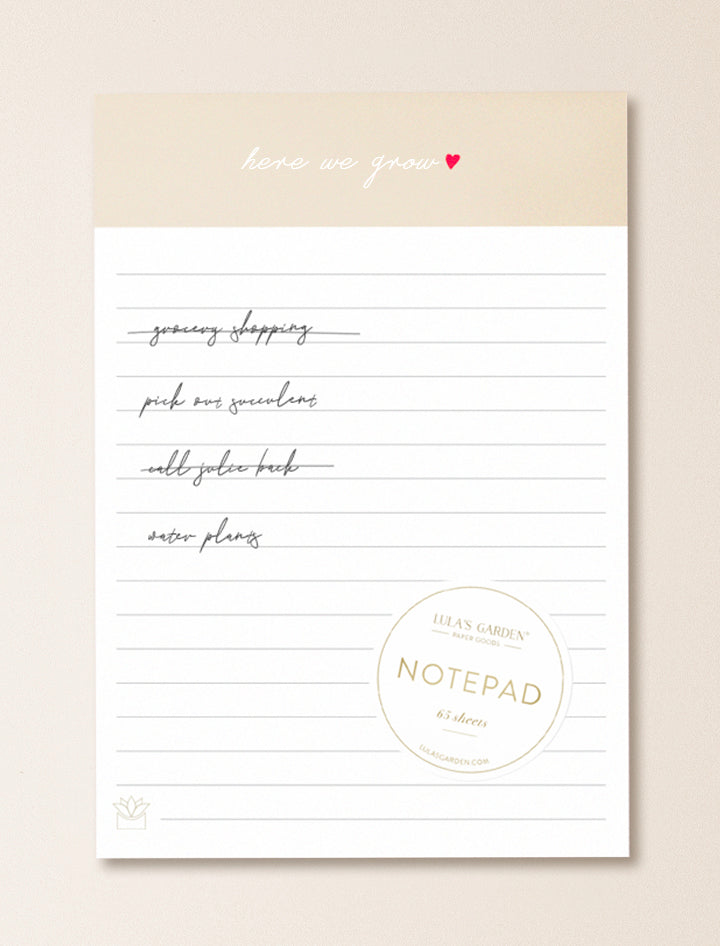 here we grow
grocery shopping
pick out succulent
call julie back
water plants
LULA'S GARDEN®
PAPER GOODS
NOTEPAD
65 sheets
LULASGARDEN.COM